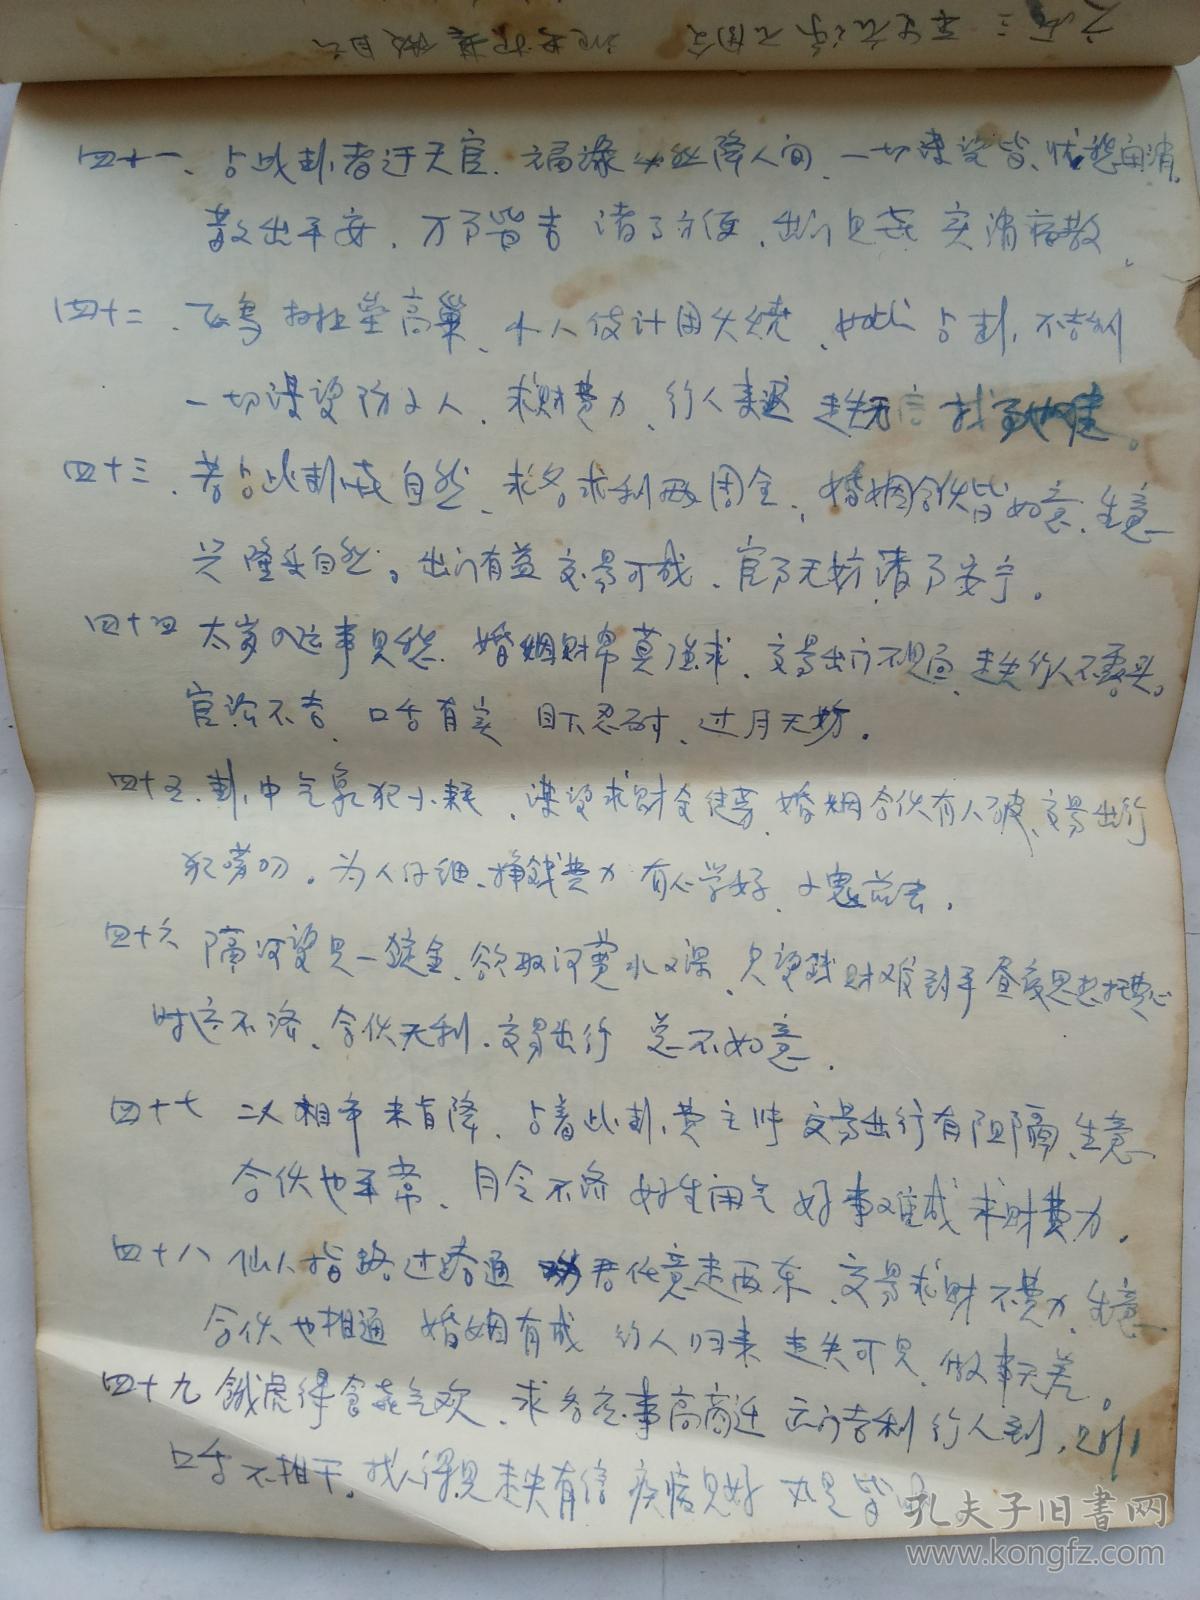 四十一、占此卦者迁天官、福禄 降人间、一切谋望皆、忧愁自消。
散出平安、万事皆吉 诸事方便、出门见喜 灾消病散、
四十二、飞鸟 树 垒高巢、小人使计用火烧、如此占卦、不吉利
一切谋望防小人、求财费力、行人来迟 走失无信 找
四十三、若占此卦喜自然、求名求利两周全、婚姻合伙皆如意、生意
兴隆乐自然。出门有益 交易可成、官事无妨 诸事安宁。
四十四 太岁 运事见愁 婚姻财帛莫强求、交易出门不 走失行人不露头。
官讼不吉、口舌有灾 目下忍耐、过月无妨。
四十五、卦中气象犯小耗、谋望求财全徒劳、婚姻合伙有人破、交易出行
犯劳叨。为人仔细、挣钱费力 有心学好、小鬼
四十六 隔河望见一锭金、欲取河宽水又深、只望钱财难到手 昼夜思想枉费心
时运不济、合伙无利、交易出行 总不如意、
四十七 二人相争未肯降、占着此卦、费主张 交易出行有阻隔、生意
合伙也平常、月令不济 好生闲气 好事难成 求财费力、
四十八 仙人指路过路通 君任意走西东、交易求财不费力、生意
合伙也相通 婚姻有成 行人归来 走失可见、做事无差。
四十九 饿虎得食喜气欢、求名 事高高迁 出门吉利 行人到、
口舌不相干。找人得见 走失有信 疾病见好 皆
孔夫子旧书网
www.kongfz.com